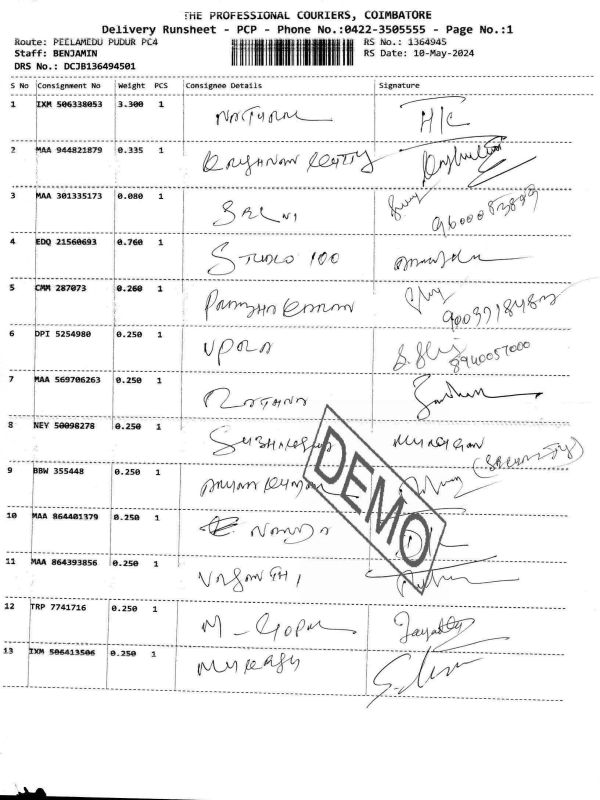 THE PROFESSIONAL COURIERS, COIMBATORE
Delivery Runsheet - PCP - Phone No.:0422-3505555 - Page No.:1
Route: PEELAMEDU PUDUR PC4 RS No.: 1364945
Staff: BENJAMIN RS Date: 10-May-2024
DRS No.: DCJB136494501
S No Consignment No Weight PCS Consignee Details Signature
1 IXM 506338053 3.300 1 H/C
2 MAA 944821879 0.335 1 KRISHNAN REDDY
3 MAA 301335173 0.080 1
4 EDQ 21560693 0.760 1 STUDIO 100
5 CMM 287073 0.260 1 PRABHAKARAN
6 DPI 5254980 0.250 1 8940057000
7 MAA 569706263 0.250 1 RATHNA
8 NEY 50098278 0.250 1 MURUGAN
(SECURITY)
9 BBW 355448 0.250 1
10 MAA 864401379 0.250 1 NANDA
11 MAA 864393856 0.250 1 VASANTHI
12 TRP 7741716 0.250 1 M-GOPAL
13 IXM 506413506 0.250 1
DEMO